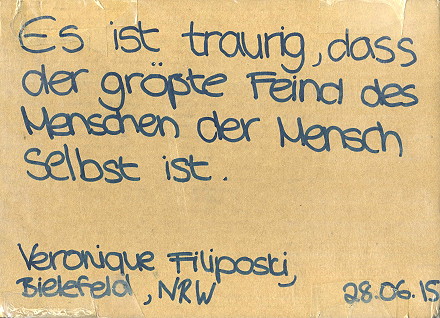 Es ist traurig, dass
der größte Feind des
Menschen der Mensch
selbst ist.
Veronique Filiposki,
Bielefeld, NRW 28.06.15